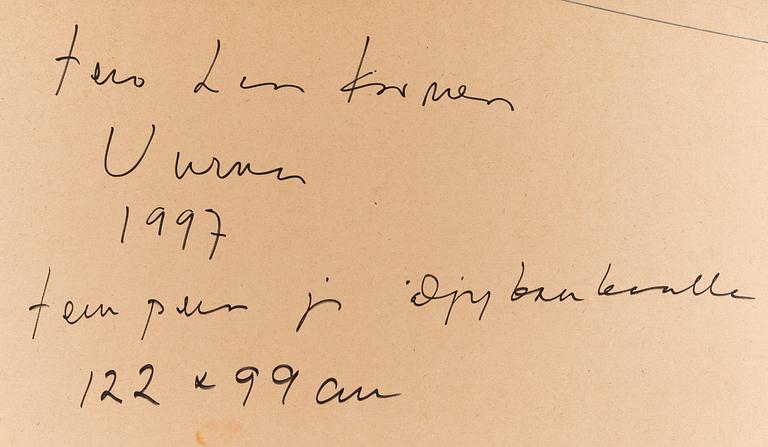 Tero Laaksonen
Uurna
1997
tempera ja öljy kankaalle
122 x 99 cm